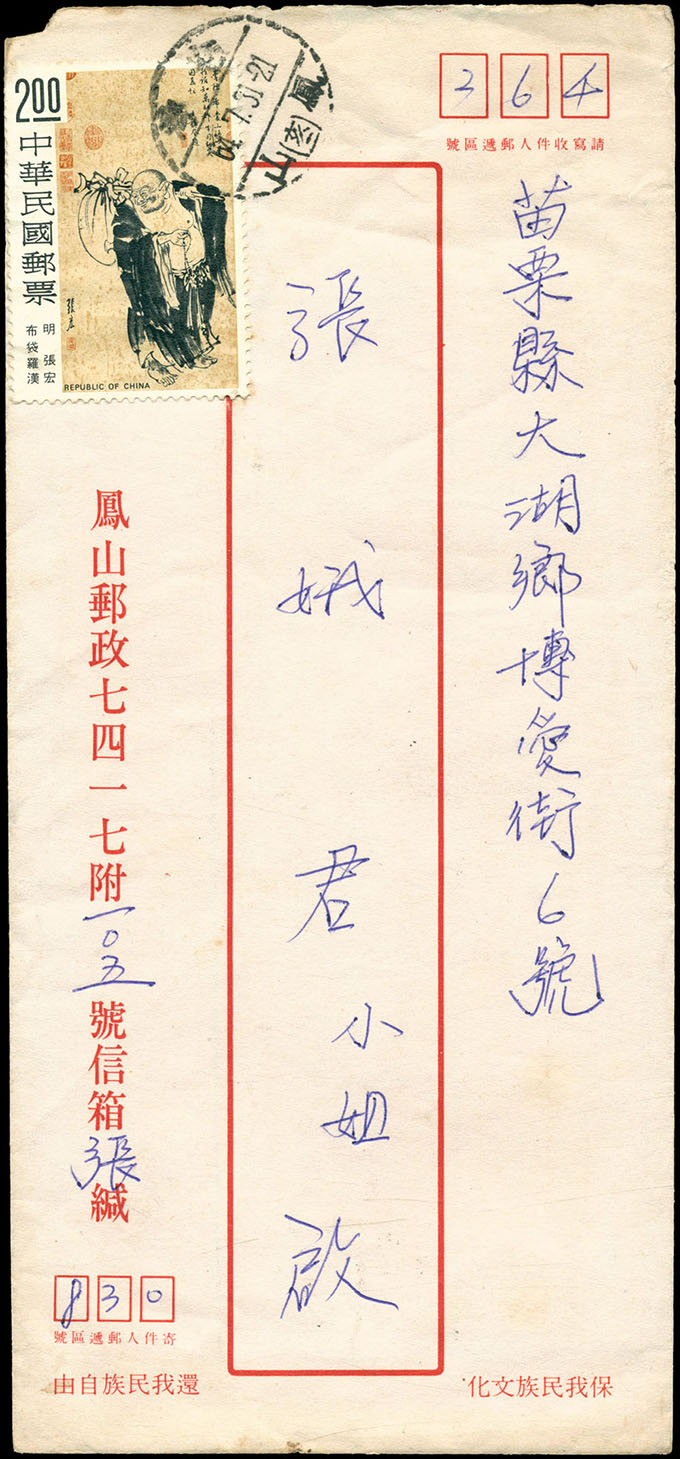 2 6 4
請寫收件人郵遞區號
苗栗縣大湖鄉博愛街6號
張娥君小姐啟
2.00
中華民國郵票
明 張宏
布袋羅漢
REPUBLIC OF CHINA
鳳山
64.7.31-21
鳳山郵政七四一七附一〇五號信箱張緘
830
寄件人郵遞區號
還我民族自由
保我民族文化